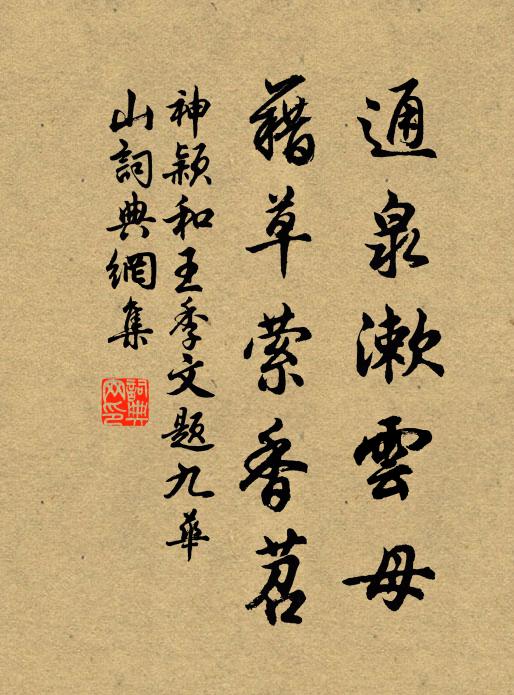 通泉漱雲母
藉草縈香苕
神穎和王季文題九華
山詞典網集
詞典
网印